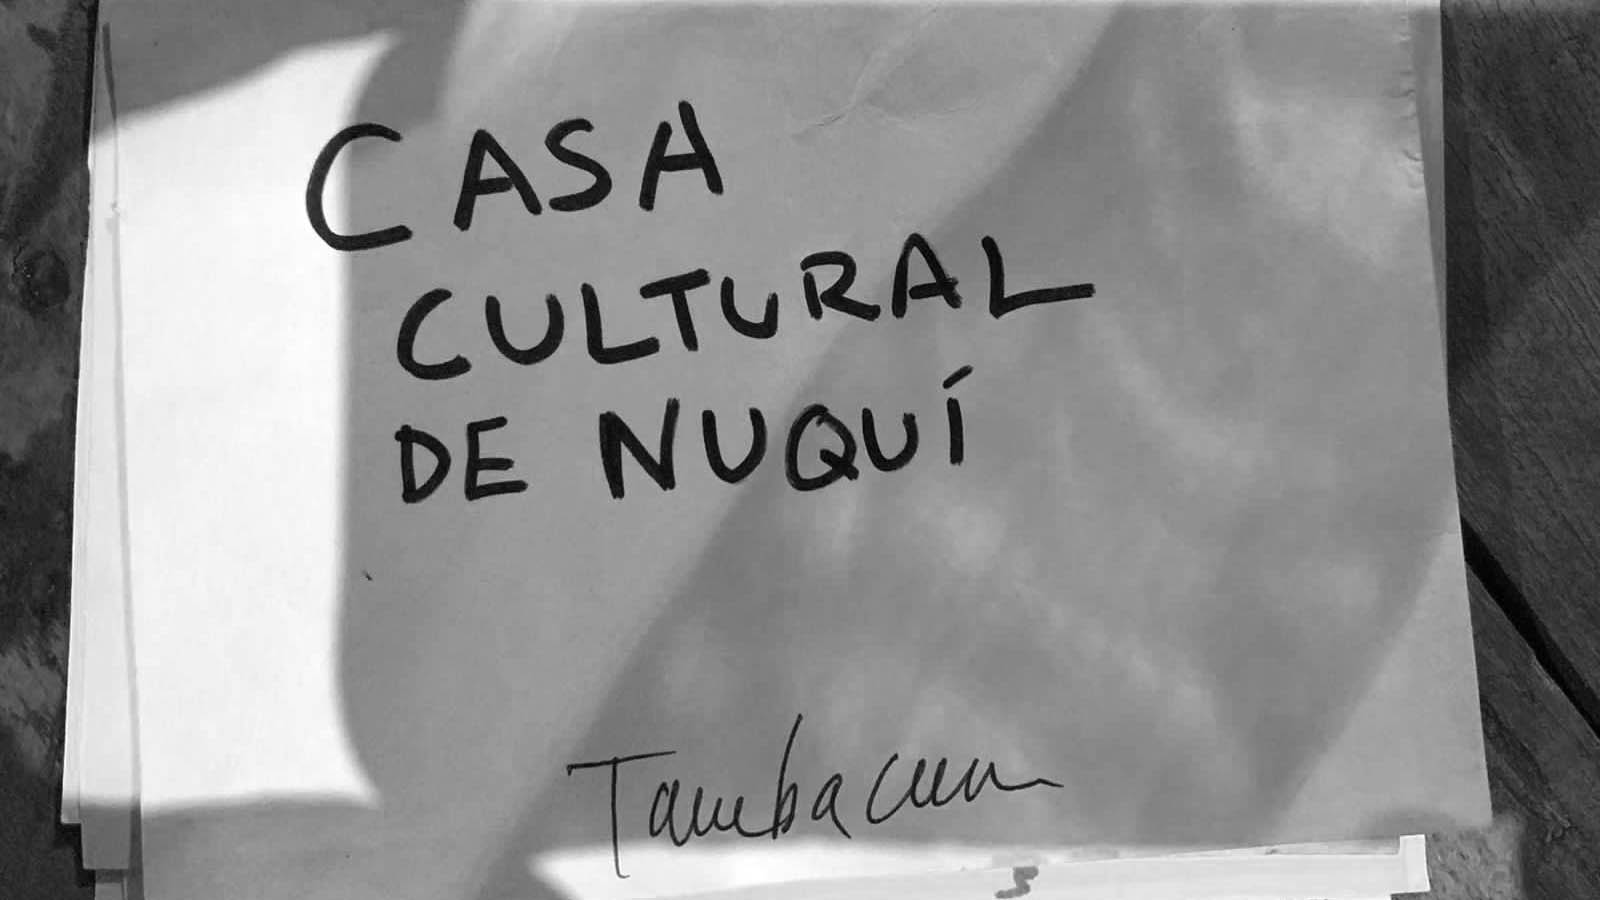 CASA
CULTURAL
DE NUQUÍ
Tambacum
5